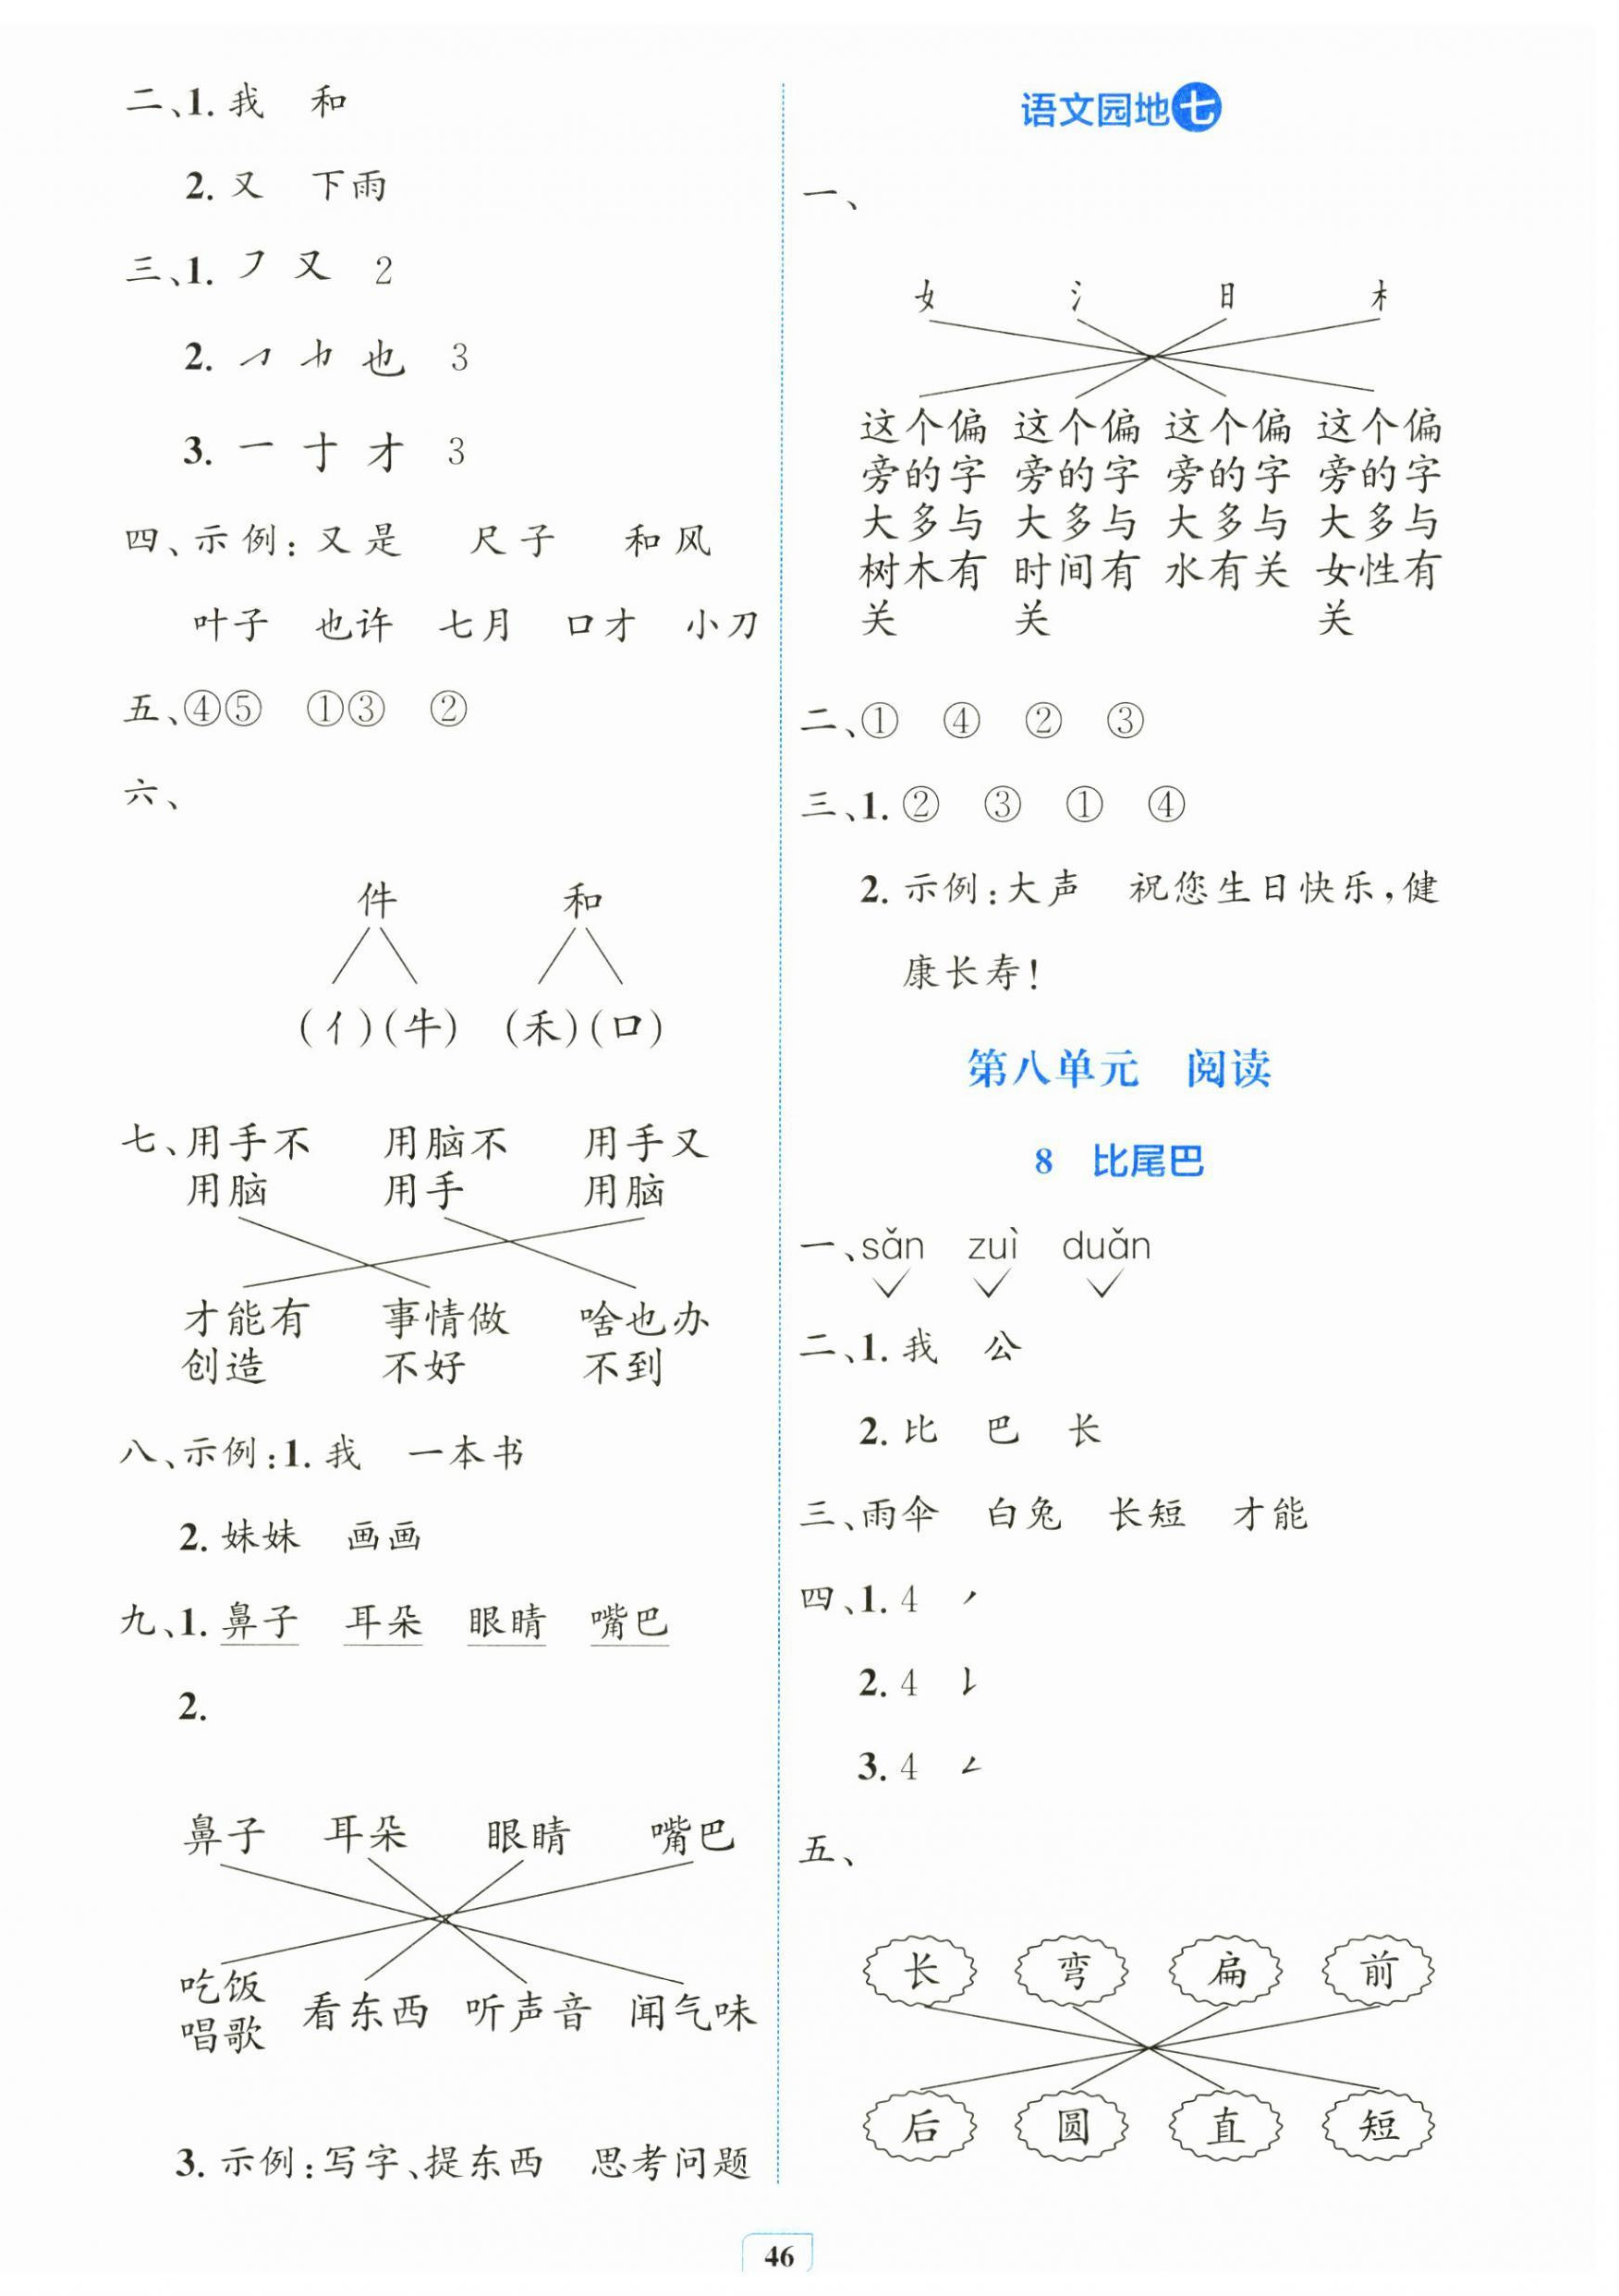 二、1. 我 和
2. 又 下雨
三、1. ㇇ 又 2
2. 𠃌 也 3
3. 一 十 才 3
四、示例:又是 尺子 和风
叶子 也许 七月 口才 小刀
五、④⑤ ①③ ②
六、
件 和
(亻)(牛) (禾)(口)
七、用手不 用脑不 用手又
用脑 用手 用脑
才能有 事情做 啥也办
创造 不好 不到
八、示例:1. 我 一本书
2. 妹妹 画画
九、1. 鼻子 耳朵 眼睛 嘴巴
2.
鼻子 耳朵 眼睛 嘴巴
吃饭 看东西 听声音 闻气味
唱歌
3. 示例:写字、提东西 思考问题
语文园地七
一、
女 氵 日 木
这个偏 这个偏 这个偏 这个偏
旁的字 旁的字 旁的字 旁的字
大多与 大多与 大多与 大多与
树木有 时间有 水有关 女性有
关 关 关
二、① ④ ② ③
三、1. ② ③ ① ④
2. 示例:大声 祝您生日快乐,健
康长寿!
第八单元 阅读
8 比尾巴
一、sǎn zuì duǎn
二、1. 我 公
2. 比 巴 长
三、雨伞 白兔 长短 才能
四、1. 4 ㇒
2. 4 ㇙
3. 4 ㇜
五、
长 弯 扁 前
后 圆 直 短
46